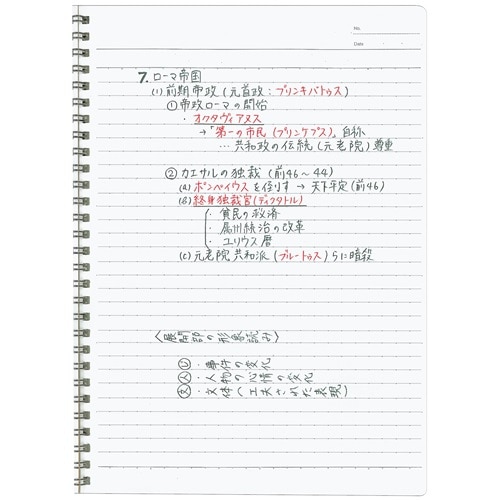 No.
Date
7. ローマ帝国
(1) 前期帝政 (元首政: プリンキパトゥス)
① 帝政ローマの開始
・オクタヴィアヌス
→「第一の市民 (プリンケプス)」自称
… 共和政の伝統 (元老院) 尊重
② カエサルの独裁 (前46～44)
(a) ポンペイウスを倒す → 天下平定 (前46)
(b) 終身独裁官 (ディクタトル)
・貧民の救済
・属州統治の改革
・ユリウス暦
(c) 元老院共和派 (ブルートゥス) らに暗殺
〈展開部の形象読み〉
・事件の変化
人・人物の心情の変化
文・文体 (工夫された表現)